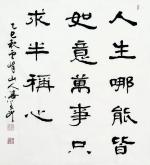 人生哪能皆
如意萬事只
求半稱心
乙巳秋雪峰山人